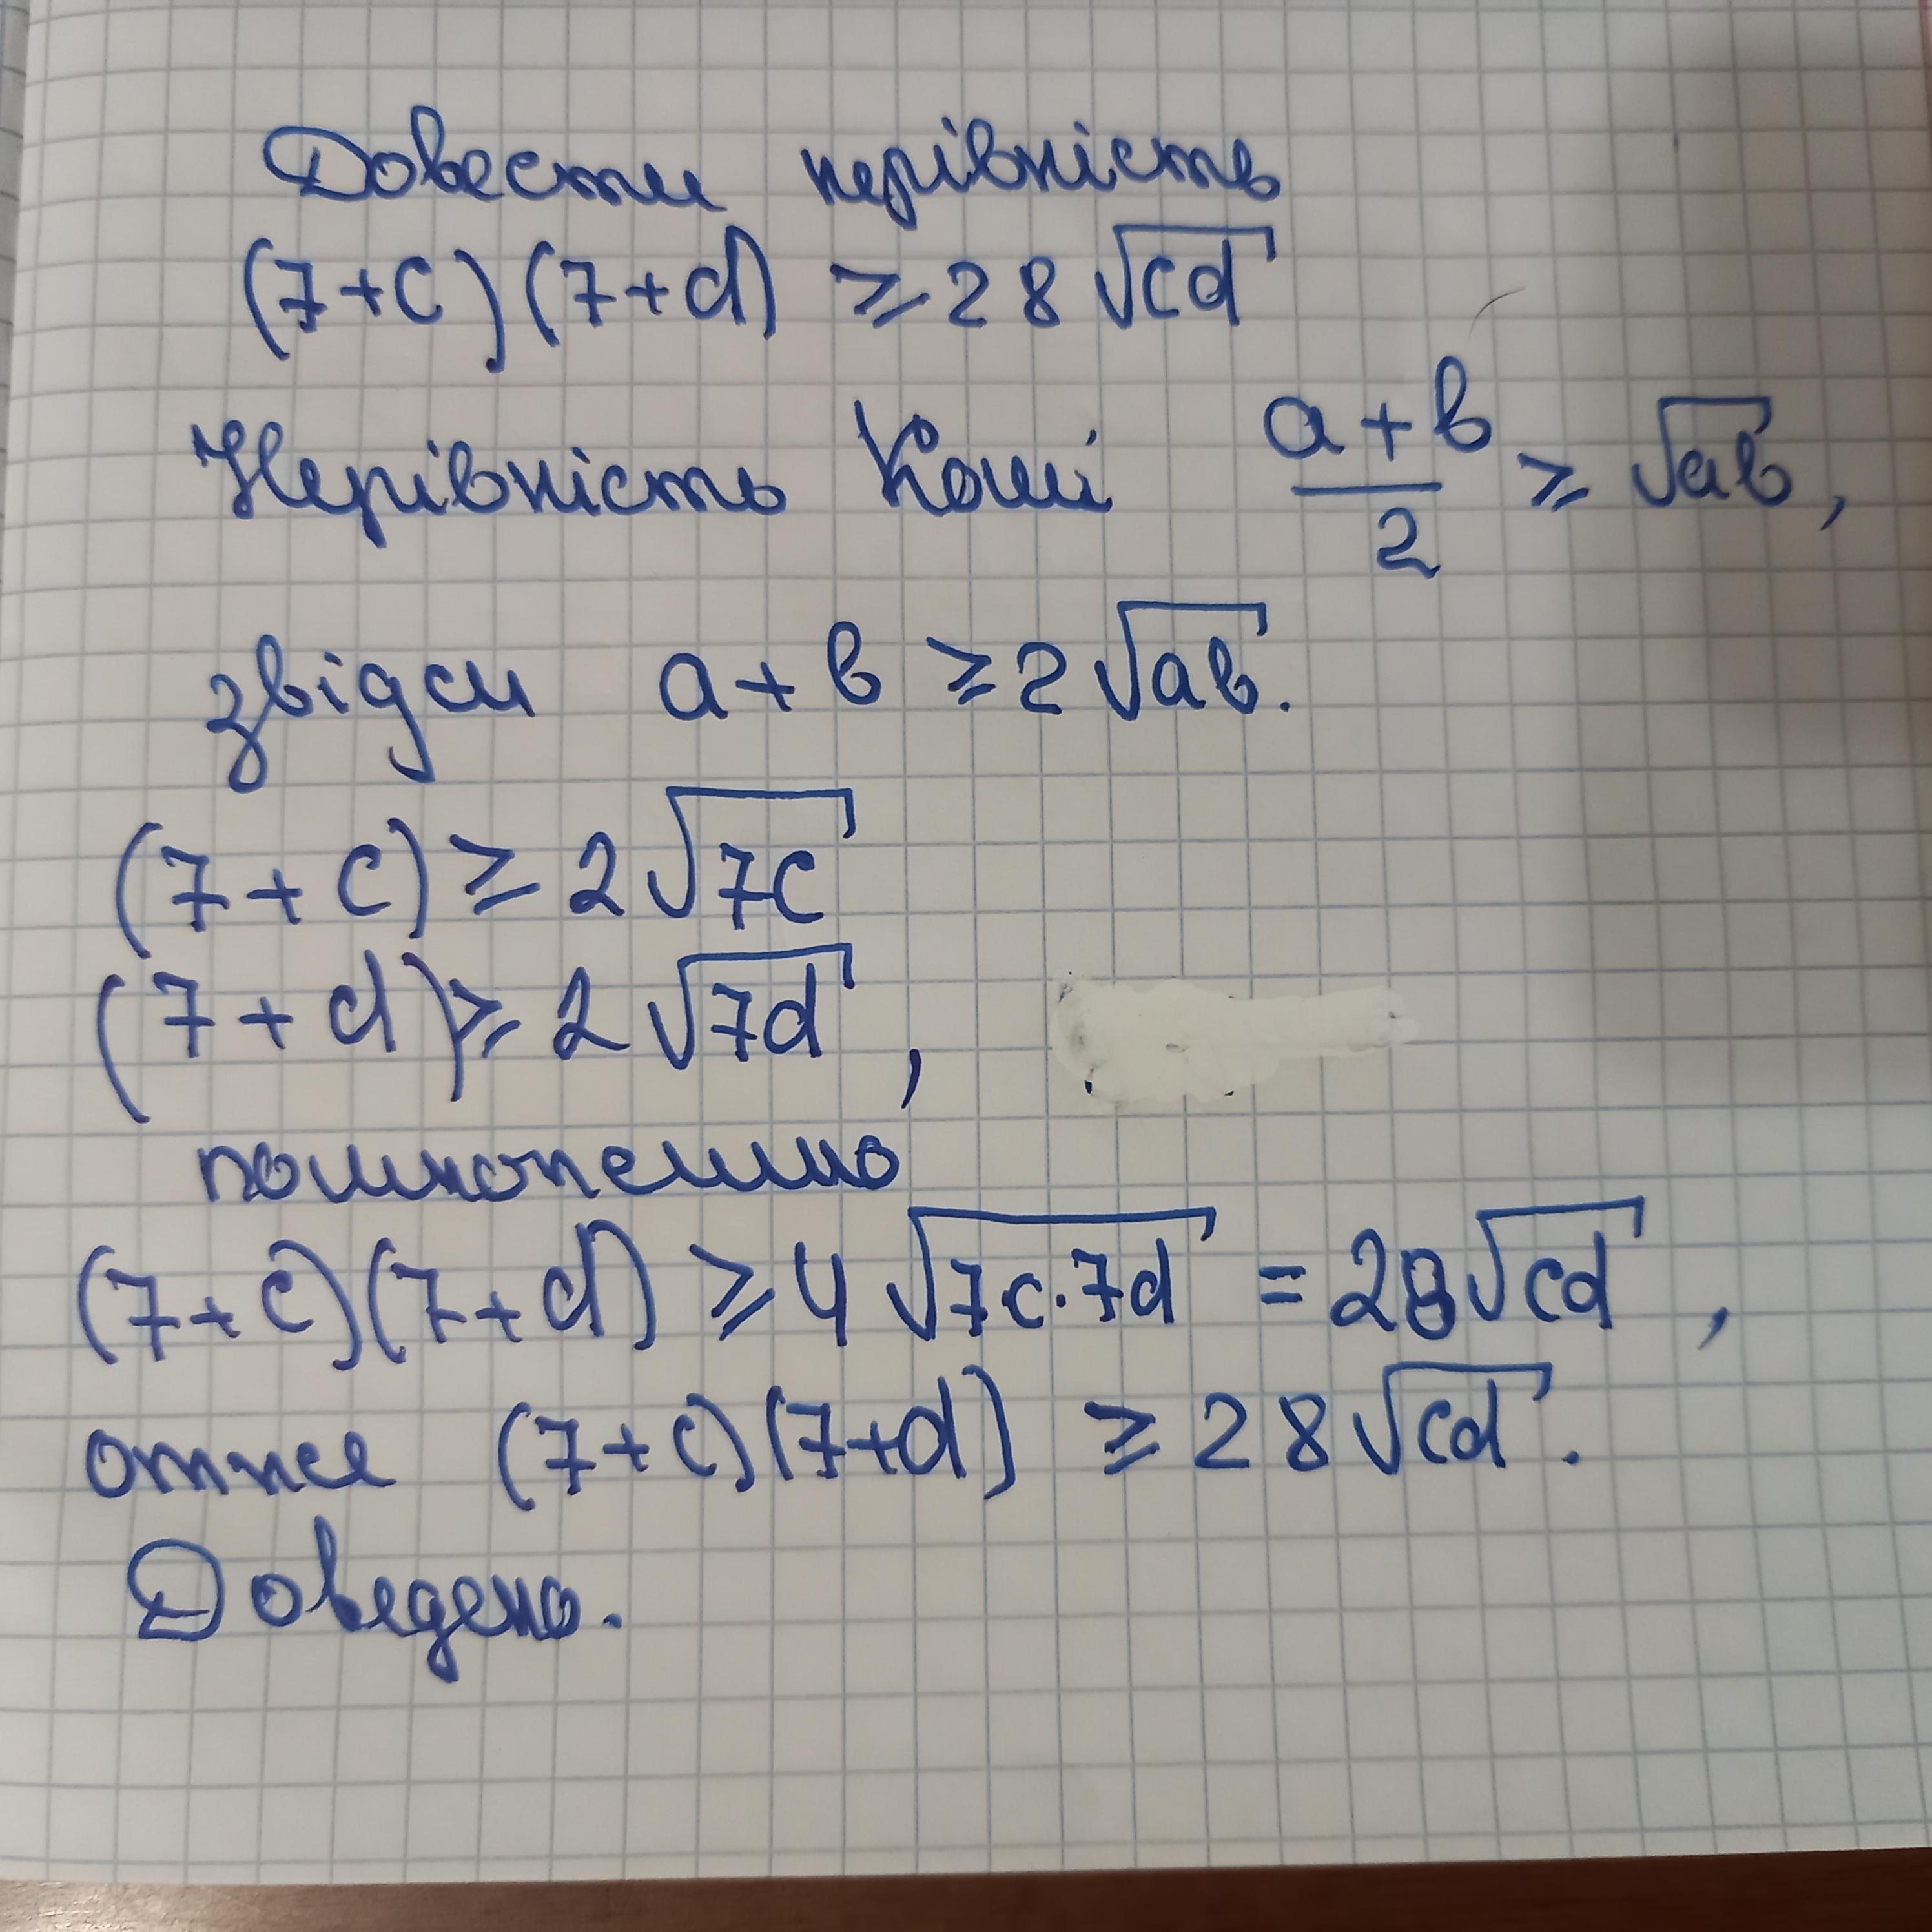 Довести нерівність
(7+c)(7+d) ≥ 28√cd
Нерівність Коші a+b/2 ≥ √ab,
звідси a+b ≥ 2√ab.
(7+c) ≥ 2√7c
(7+d) ≥ 2√7d,
помножемо
(7+c)(7+d) ≥ 4√7c·7d = 28√cd,
отже (7+c)(7+d) ≥ 28√cd.
Доведено.